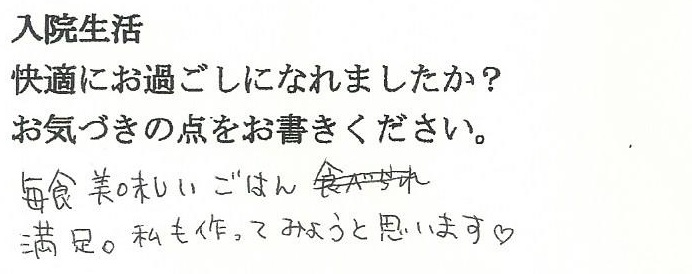 入院生活
快適にお過ごしになれましたか？
お気づきの点をお書きください。
毎食 美味しい ごはん 食べられ
満足。私も作ってみようと思います♡